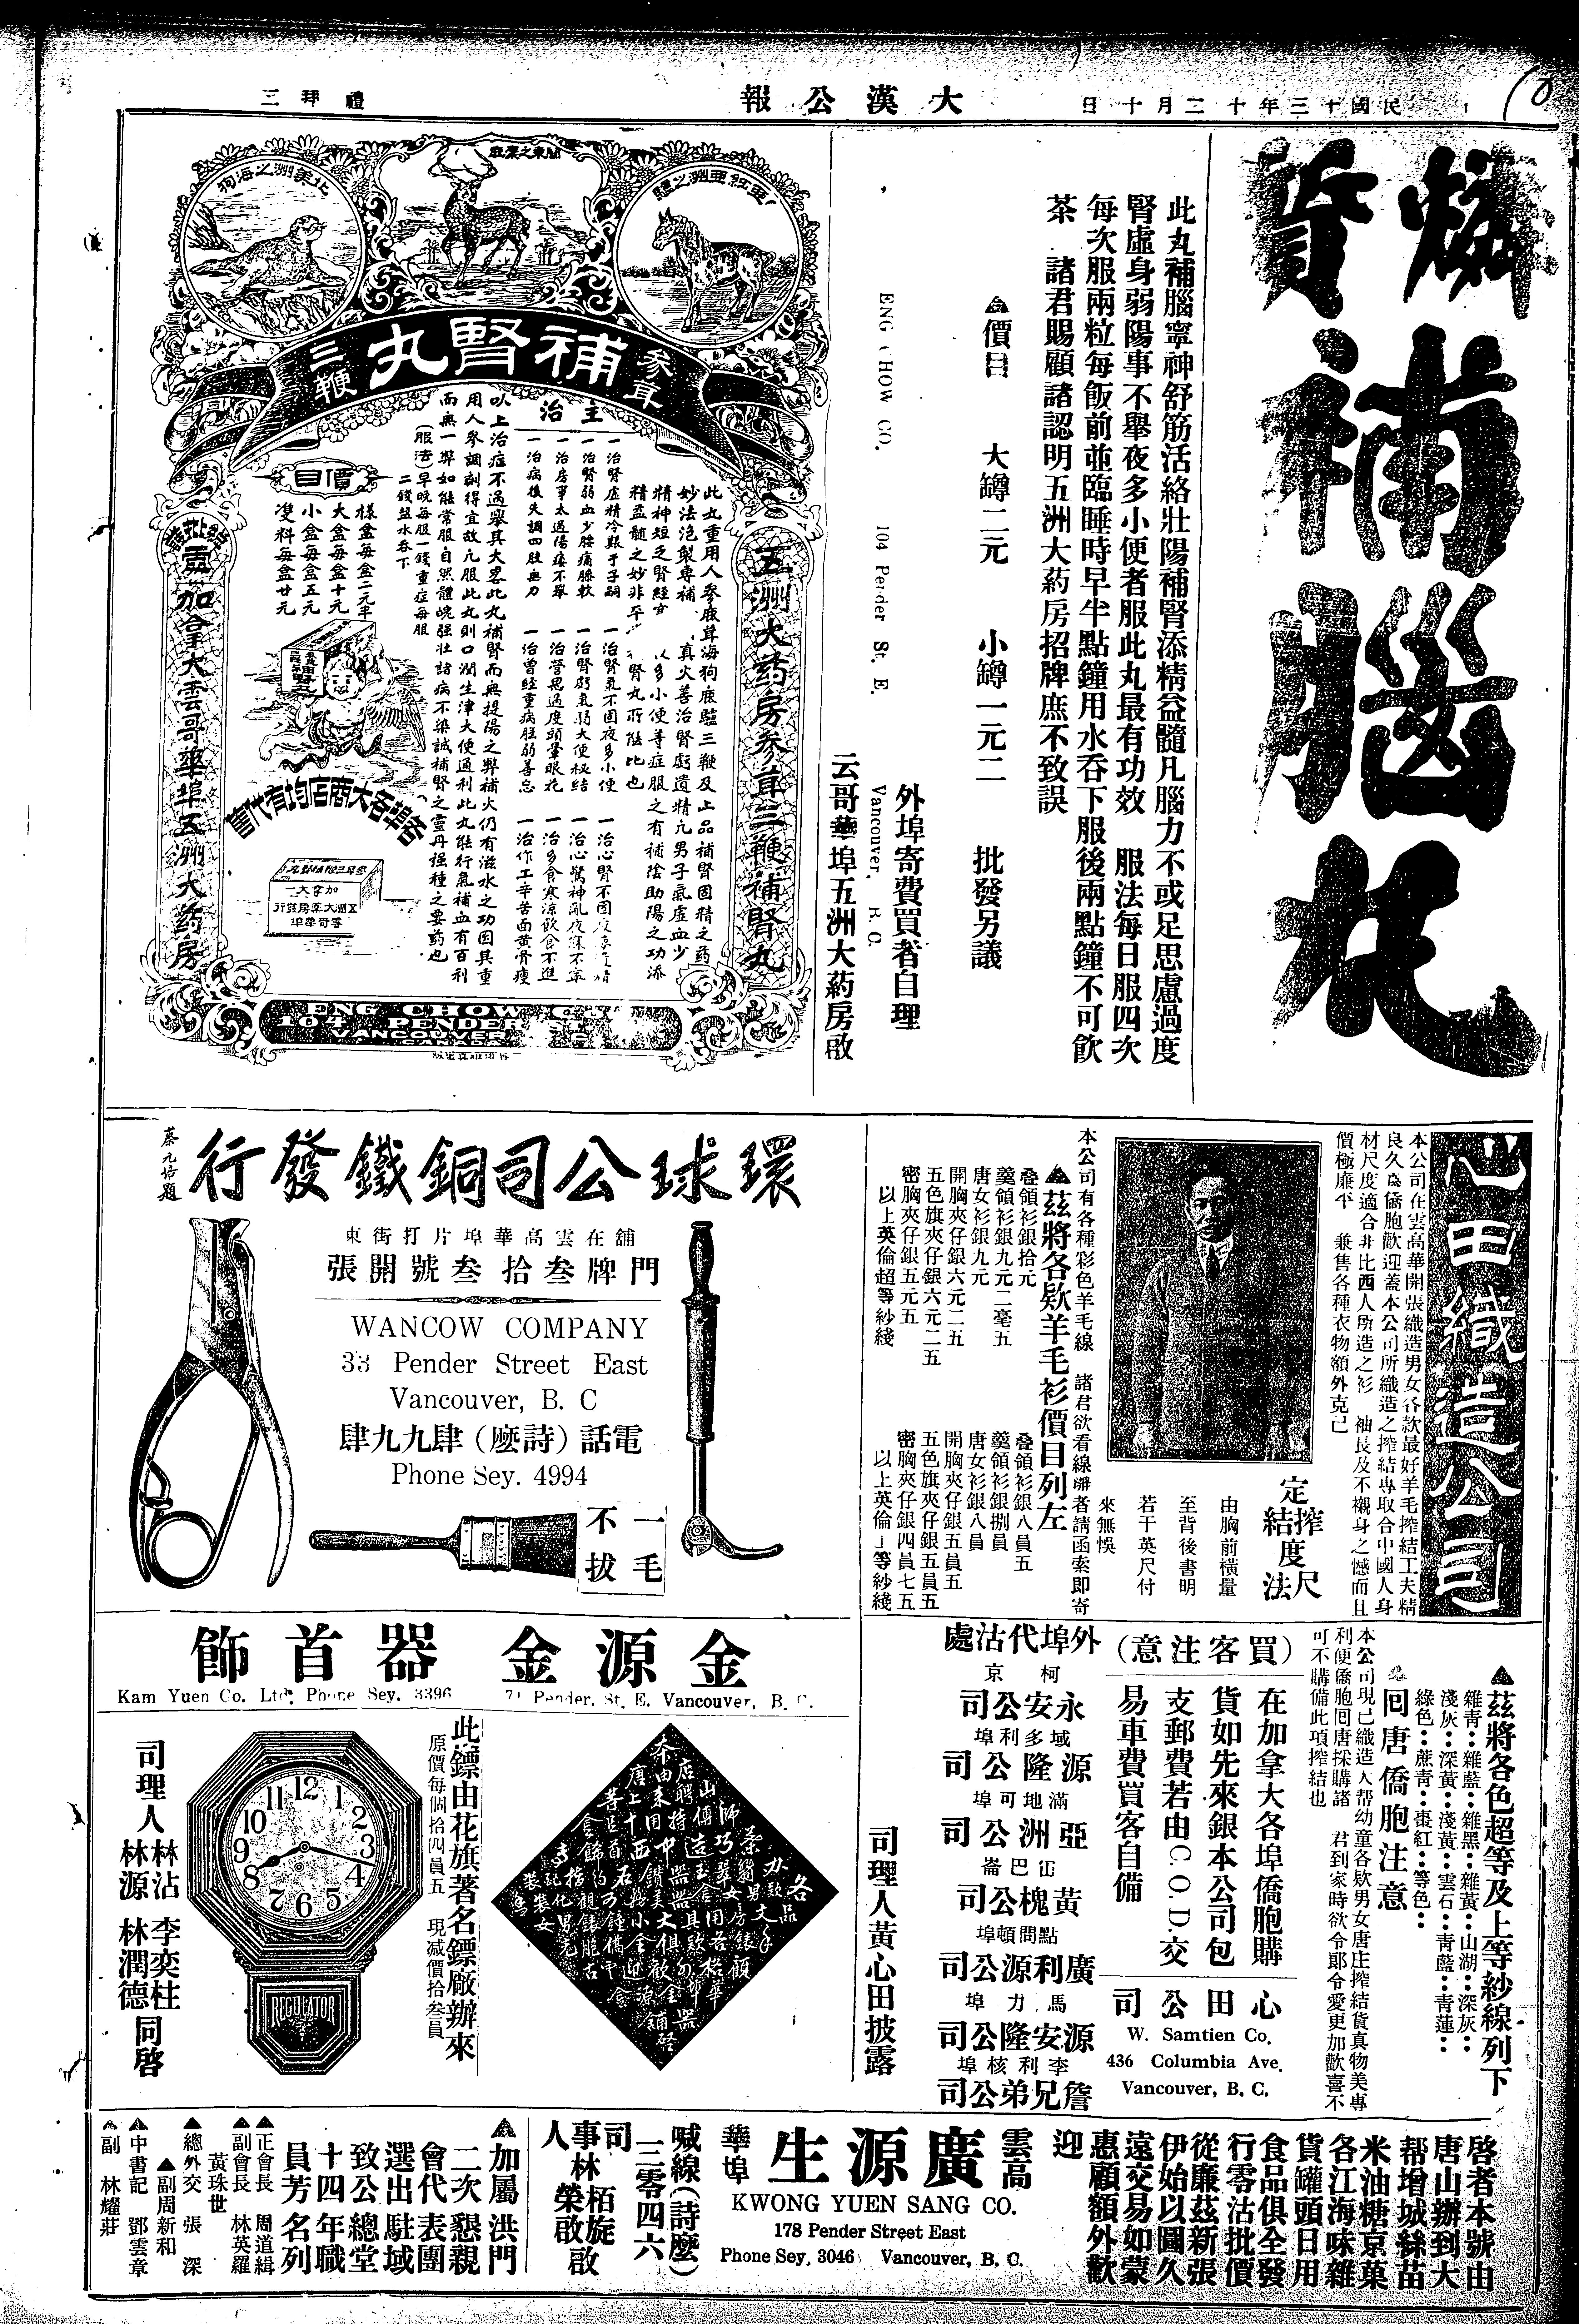 民國十三年十二月十日
大漢公報
禮拜三
燐質補腦丸
此丸補腦寧神舒筋活絡壯陽補腎添精益髓凡腦力不或足思慮過度
腎虛身弱陽事不舉夜多小便者服此丸最有功效　服法每日服四次
每次服兩粒每飯前並臨睡時早半點鐘用水吞下服後兩點鐘不可飲
茶　諸君賜顧諸認明五洲大葯房招牌庶不致誤
價目　大罇二元　小罇一元二　批發另議
外埠寄費買者自理
ENG CHOW CO. 104 Pender St. E. Vancouver, B. C.
云哥華埠五洲大葯房啟
亞細亞洲之驢
關東之鹿
北美洲之海狗
參茸補腎丸三鞭
五洲大葯房參茸三鞭補腎丸
此丸重用人參鹿茸海狗鹿驢三鞭及上品補腎固精之葯
主治
一治腎虛精冷艱于子嗣
一治腎弱血少腰痛膝軟
一治房事太過陽痿不舉
一治病後失調四肢無力
一治腎氣不固夜多小便
一治腎虧氣弱大便秘結
一治營思過度頭暈眼花
一治曾經重病胜弱善忘
一治心驚神亂夜寐不寧
一治多食寒涼飲食不進
一治作工辛苦面黃骨瘦
以上治症不過舉其大畧此丸補腎而無提陽之弊補火仍有滋水之功因其重
用人參調劑得宜故凡服此丸則口潤生津大便通利此丸能行氣補血有百利
而無一弊如能常服自然體魄强壯諸病不染誠補腎之靈丹强種之要葯也
(服法)早晚每服一錢重症每服
二錢盐水吞下
價目
樣盒每盒二元半
大盒每盒十元
小盒每盒五元
雙料每盒廿元
各埠各大商店均有代售
加拿大雲哥華埠五洲大葯房
ENG CHOW CO.
104 PENDER ST. E.
VANCOUVER
心田織造公司
本公司在雲高華開張織造男女各款最好羊毛搾結工夫精
良久為僑胞歡迎蓋本公司所織造之搾結專取合中國人身
材尺度適合非比西人所造之衫　袖長及不襯身之憾而且
價極廉平　兼售各種衣物額外克已
定搾結度尺法
由胸前橫量
至背後書明
若干英尺付
來無悞
本公司有各種彩色羊毛線　諸君欲看線辦者請函索即寄
茲將各欵羊毛衫價目列左
叠領衫銀拾元
羹領衫銀九元二毫五
唐女衫銀九元
開胸夾仔銀六元二五
五色旗夾仔銀六元二五
密胸夾仔銀五元五
以上英倫超等紗綫
叠領衫銀八員五
羹領衫銀捌員
唐女衫銀八員
開胸夾仔銀五員五
五色旗夾仔銀五員五
密胸夾仔銀四員七五
以上英倫上等紗綫
環球公司銅鐵發行
蔡元培題
舖在雲高華埠片打街東
門牌叁拾叁號開張
WANCOW COMPANY
33 Pender Street East
Vancouver, B. C
電話(詩麼)肆九九肆
Phone Sey. 4994
一毛不拔
茲將各色超等及上等紗線列下
雜青：雜藍：雜黑：雜黃：山湖：深灰：
淺灰：深黃：淺黃：雲石：青藍：青蓮：
綠色：蔗青：棗紅：等色：
囘唐僑胞注意
本公司現已織造大帮幼童各欵男女唐庄搾結貨真物美專
利便僑胞囘唐採購諸　君到家時欲令郎令愛更加歡喜不
可不購備此項搾結也
(買客注意)
在加拿大各埠僑胞購
貨如先來銀本公司包
支郵費若由C.O.D.交
易車費買客自備
心田公司
W. Samtien Co.
436 Columbia Ave.
Vancouver, B. C.
外埠代沽處
柯京
永安公司
域多利埠
源隆公司
滿地可埠
亞洲公司
冚巴崙
黃槐公司
點問頓埠
廣利源公司
馬力埠
源安隆公司
李利核埠
詹兄弟公司
司理人黃心田披露
金源金器首飾
Kam Yuen Co. Ltd. Phone Sey. 3396
71 Pender. St. E. Vancouver, B. C.
此鏢由花旗著名鏢廠辦來
原價每個拾四員五　現减價拾叁員
REGULATOR
司理人　林沾　李奕柱　林源　林潤德　同啓
啓者本號由
唐山辦到大
帮增城絲苗
米油糖京菓
各江海味雜
貨罐頭日用
食品俱全發
行零沽批價
從廉茲新張
伊始以圖久
遠交易如蒙
惠顧額外歡
迎
雲高華埠
廣源生
KWONG YUEN SANG CO.
178 Pender Street East
Phone Sey. 3046 Vancouver, B. C.
喊線(詩麼)
三零四六
司事人林栢旋林榮啟啟
加屬洪門
二次懇親
會代表團
選出駐域
致公總堂
十四年職
員芳名列
正會長　周道緝
副會長　林英羅
黃珠世
總外交　張深
副周新和
中書記　鄧雲章
副　林耀莊